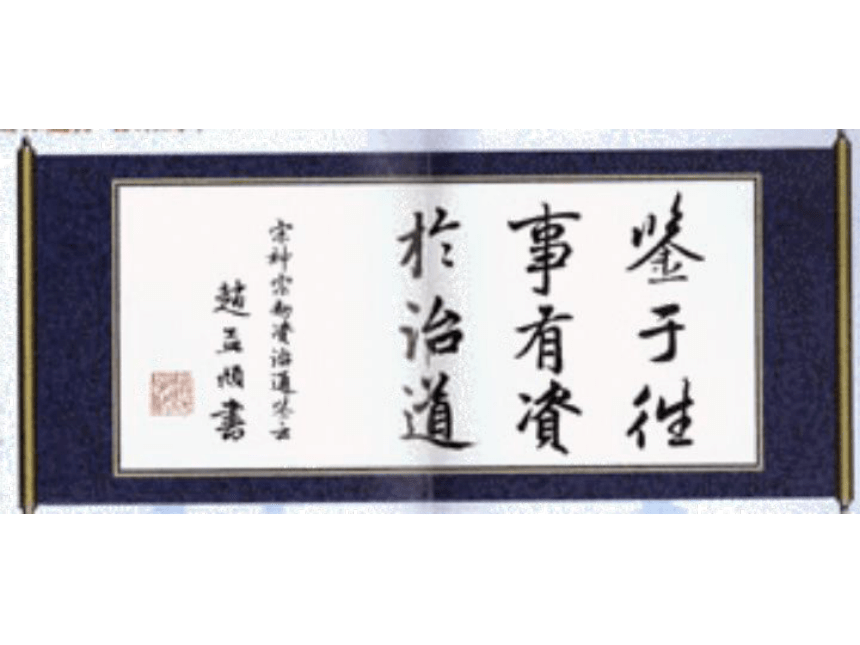 鉴于往
事有资
於治道
宋神宗 资治通鉴云
趙孟頫書